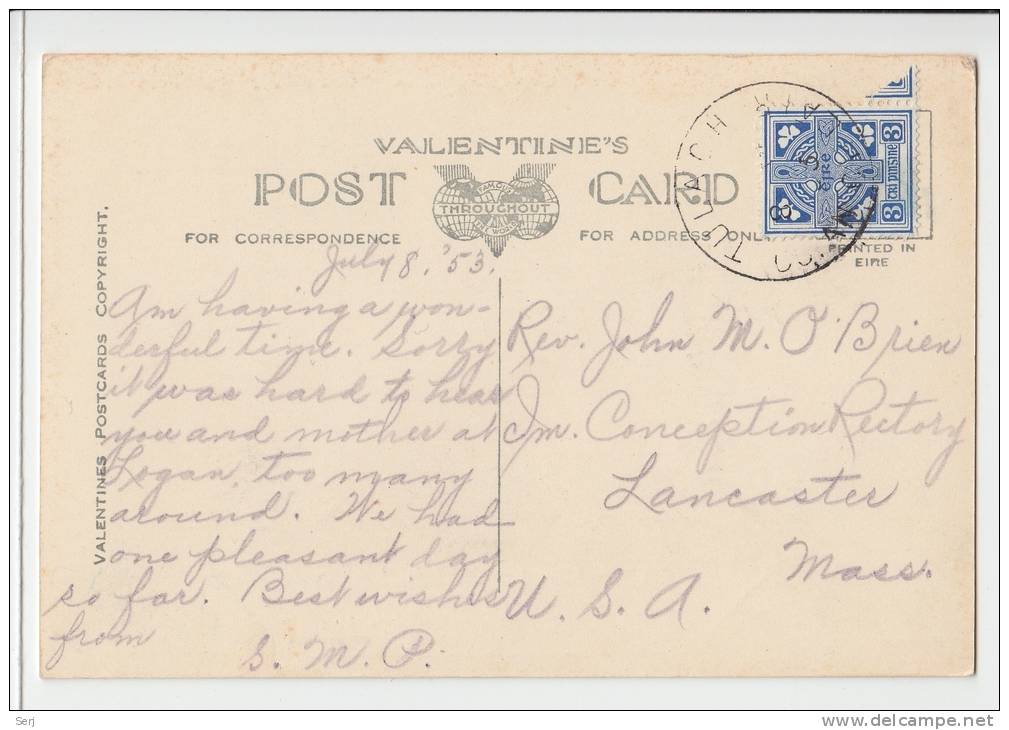 VALENTINE'S
POST CARD
FAMOUS
THROUGHOUT
THE WORLD
FOR CORRESPONDENCE
FOR ADDRESS ONLY
PRINTED IN
EIRE
VALENTINES POSTCARDS COPYRIGHT.
TULACH
3
3
éire
July 8, '53.
Am having a won-
derful time. Sorry
it was hard to hear
you and mother at
Logan, too many
around. We had
one pleasant day
so far. Best wishes
from
S. M. P.
Rev. John M. O'Brien
Im. Conception Rectory
Lancaster
Mass.
U. S. A.
Serj
www.delcampe.net